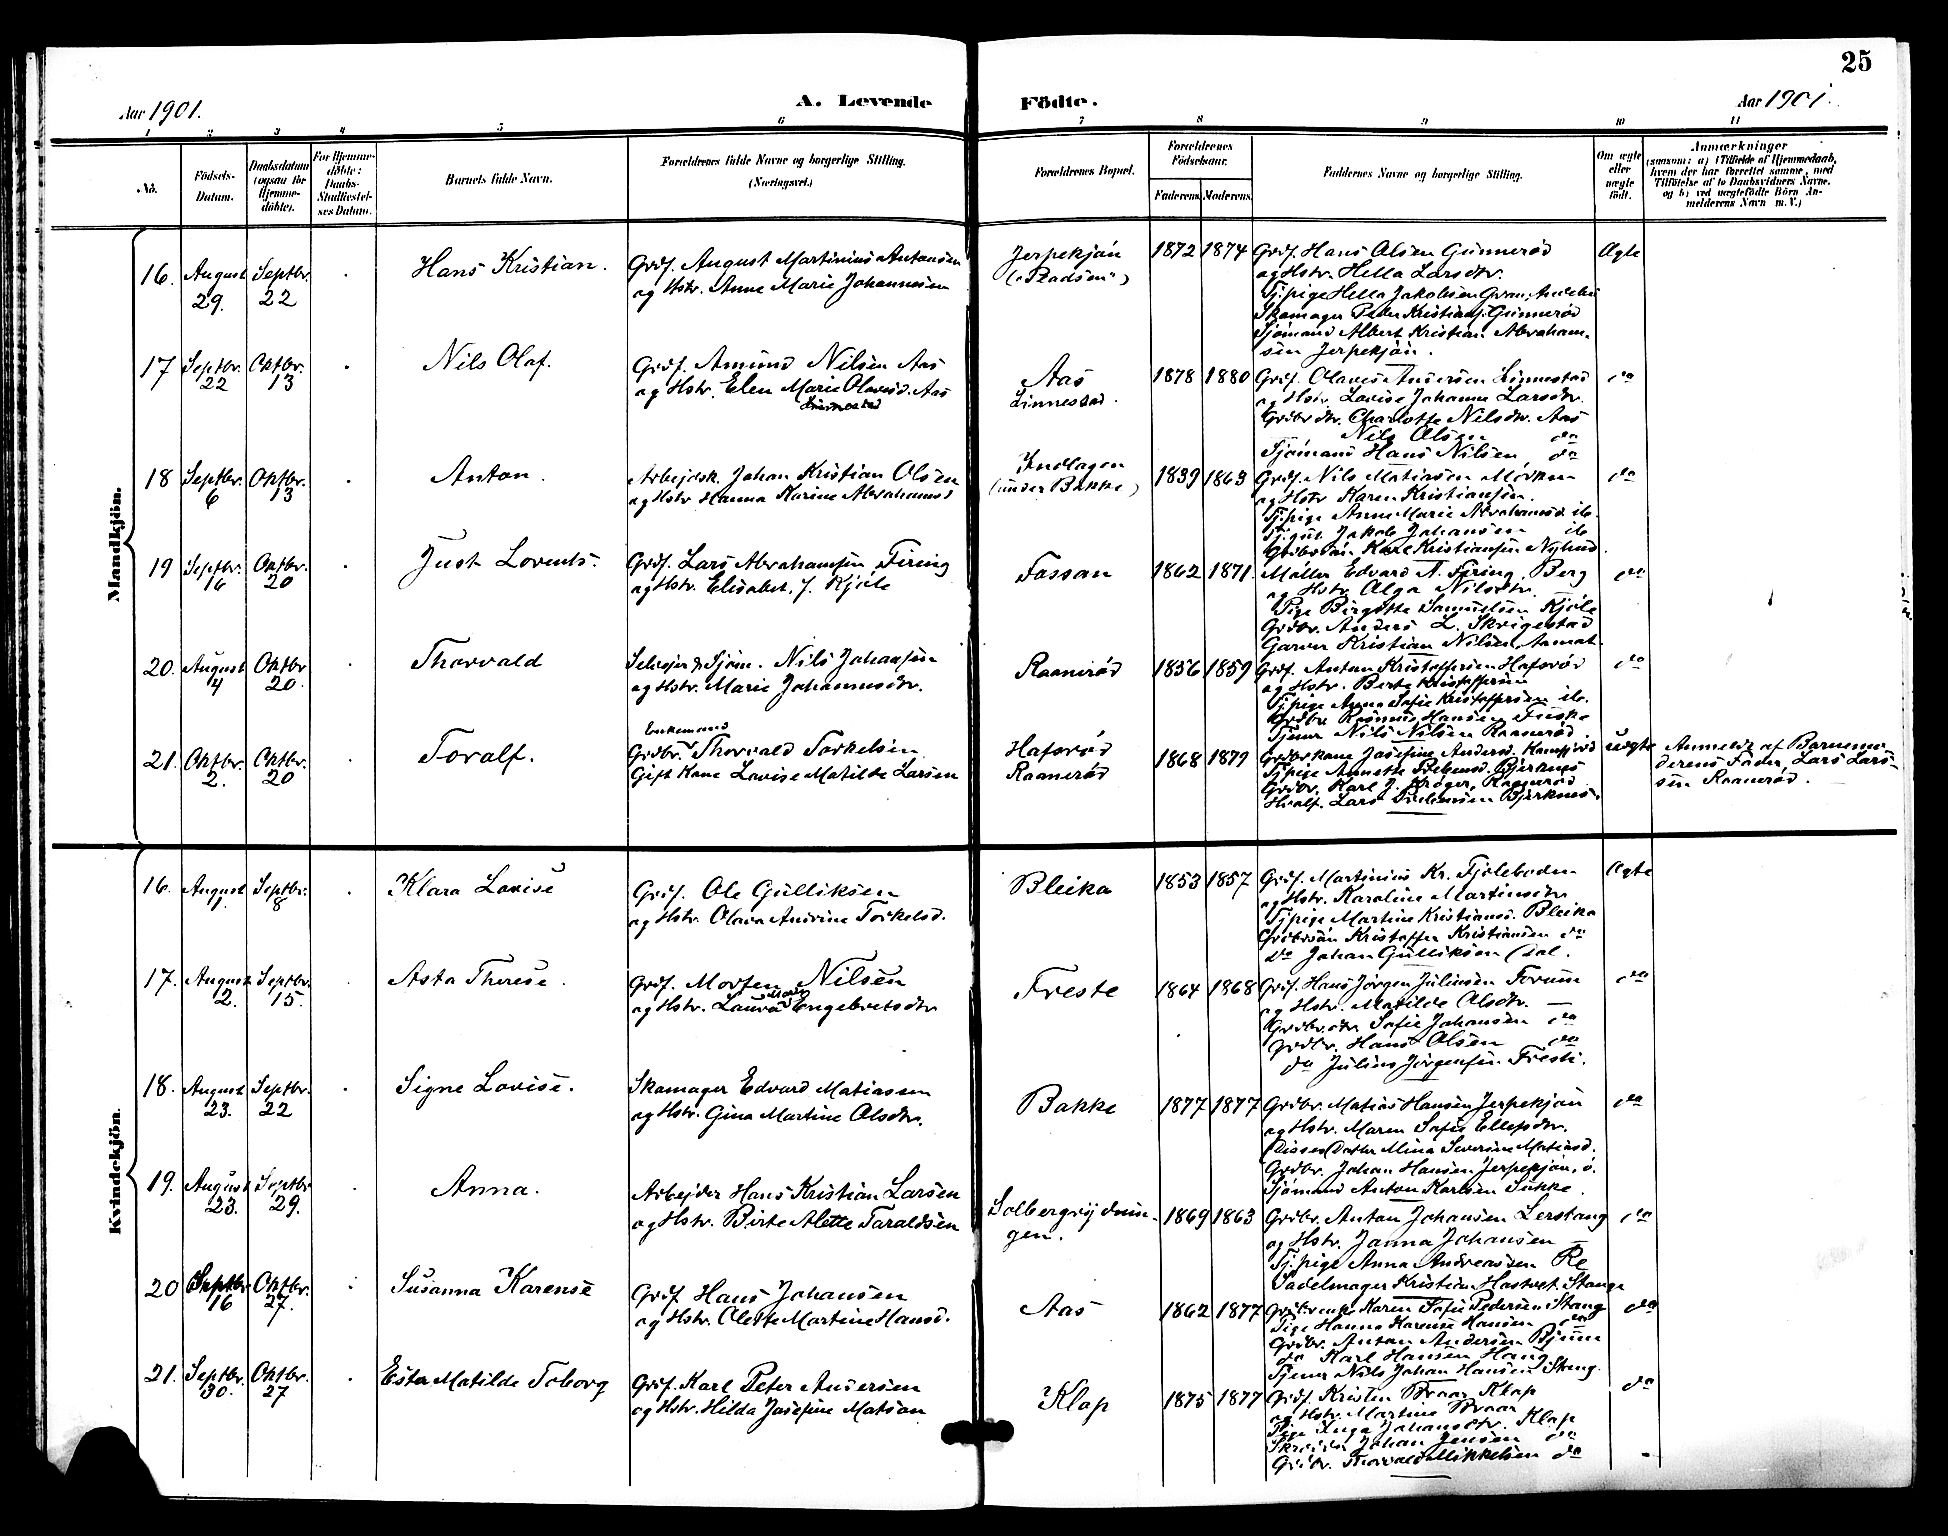 25
Aar 1901.
A. Levende Födte.
Aar 1901.
1 2 3 4 5 6 7 8 9 10 11
No.
Födsels-
Datum.
Daabsdatum
(ogsaa for
Hjemme-
döbte).
For Hjemme-
döbte:
Daabs-
Stadfæstel-
ses Datum.
Barnets fulde Navn.
Forældrenes fulde Navne og borgerlige Stilling.
(Næringsvei.)
Forældrenes Bopæl.
Forældrenes
Födselsaar.
Faderens. Moderens.
Faddernes Navne og borgerlige Stilling.
Om ægte
eller
uægte
födt.
Anmærkninger
(saasom: a) i Tilfælde af Hjemmedaab,
hvem der har forrettet samme, med
Tilföielse af to Daabsvidners Navne,
og b) ved uægtefödte Börn An-
melderens Navn m. V.)
Mandkjön.
16. August 29. Septbr. 22 Hans Kristian.
Grdf. August Martinius Antonsen
og Hstr. Anne Marie Johannesen
Jerpekjøn
("Pladsen")
1872 1874
Grdf. Hans Olsen Gunnerød
og Hstr. Hella Larsdtr.
Tj.pige Hella Jakobsen
Skomager Peder Kristians. Gunnerød
Sjømand Albert Kristian Abraham-
sen Jerpekjøn.
Ægte
17 Septbr. 22 Oktbr. 13 Nils Olaf.
Grdf. Amund Nilsen Aas
og Hstr. Elen Marie Olavesd. Aas
Linnestad
Aas
Linnestad.
1878 1880
Grdf. Olaves Andersen Linnestad
og Hstr. Lovise Johanne Larsdtr.
Grdbrdtr. Charlotte Nilsdtr. Aas
Nils Olsen do
Sjømand Hans Nilsen, do
do
18 Septbr. 6 Oktbr. 13 Anton.
Arbejdsk. Johan Kristian Olsen
og Hstr Hanna Karine Abrahamsd
Indlagen
(under Bakke)
1839 1863
Grdf. Nils Matiasen Mörken
og Hstr Karen Kristiansen.
Tj.pige Anne Marie Abrahamsd. ib.
Tj.gut Jakob Johansen ib.
Grdbrsøn Karl Kristiansen Nylund.
do
19 Septbr. 16 Oktbr. 20 Just Lorents.
Grdf. Lars Abrahamsen Firing
og Hstr. Elisabet, f. Kjøle
Fossan
1862 1871.
Møller Edvard A. Firing, Berg
og Hstr Olga Nilsdtr.
Pige Birgitte Samuelsen Kjøle
Grdbr. Anders L. Skrigestad
Garver Kristian Nilsen,
do
20. August 4 Oktbr 20. Thorvald
Selvejer & Sjøm. Nils Johansen
og Hstr. Marie Johannesdtr.
Raanerød
1856 1859
Grdf. Anton Kristoffersen Hafsrød
og Hstr. Berte Kristoffersen
Tj.pige Anna Sofie Kristoffersen ib.
Grdbr Rasmus Hansen Freske
Tjener Nils Nilsen Raanerød.
do
21. Oktbr. 2. Oktbr. 20 Toralf.
Enkemand
Grdbr. Thorvald Torkelsen
Gift Kone Lovise Matilde Larsen
Hafsrød
Raanerød
1868 1879
Grdbrskone Josefine Andersd.
Tj.pige Annette Bjerknes
Grdbr. Karl J. Krøger, Raanerød
Lars Bjerknes.
uægte
Anmeldt af Barnemo-
derens Fader, Lars Lars-
sen Raanerød.
Kvindekjön.
16. August 1. Septbr. 8 Klara Lovise
Grdf. Ole Gulliksen
og Hstr. Olava Andrine Torkelsd.
Bleika
1853 1857
Grdf. Martinius Kr. Fjeleboden
og Hstr. Karoline Martinsdtr
Tj.pige Martine Kristiansd. Bleika
Grdbrsøn Kristoffer Kristiansen do
do Johan Gulliksen Dal.
Ægte
17. August 2. Septbr. 15. Asta Therese.
Grdf. Morten Nilsen
og Hstr. Laura Marie Engebretsdtr
Freste
1864 1868
Grdf. Hans Jørgen Juliusen Forum
og Hstr. Matilde Olsdtr. —
Grdbr.dtr Sofie Johansen do
Grdbr. Hans Olsen do
do Julius Jørgensen. Freste.
do
18. August 23. Septbr. 22 Signe Lovise.
Skomager Edvard Matiassen
og Hstr. Gina Martine Olsdtr.
Bakke
1877 1877
Grdbr. Matias Hansen Jerpekjøn
og Hstr. Maren Sofie Ellefsdtr.
Disses Datter Mina Severine Matiasd.
Grdbr. Johan Hansen Jerpekjøn, ö.
Sjømand Anton Karlsen Sukke.
do
19. August 23. Septbr 29. Anna.
Arbejder Hans Kristian Larsen
og Hstr. Birte Alette Taraldsen
Solbergrydnin-
gen.
1869 1863
Grdbr. Anton Johansen Lerstang
og Hstr. Janna Johansen —
Tj.pige Anna Andreassen Re
Sadelmager Kristian Hastvet. Stange
do
20 Septbr 16 Oktbr. 27. Susanna Karense
Grdf Hans Johansen
og Hstr. Olette Martine Hansd.
Aas
1862 1877
Grdbrenke Karen Sofie Pedersen Stang
Pige Hanna Karense Hansen do
Grdbr. Anton Andersen Bjune
do Karl Hansen Haug
Tjener Nils Johan Hansen Stang.
do
21. Septbr. 30. Oktbr. 27 Ester Matilde Toborg
Grdf. Karl Peter Andersen
og Hstr. Hilda Josefine Matson
Klop
1875 1877
Grdf. Kristen Braar Klop
og Hstr. Martine Braar
Pige Inga Johansdtr. Klop
Johan Jensen do
Grdbr. Thorvald Mikkelsen do
do